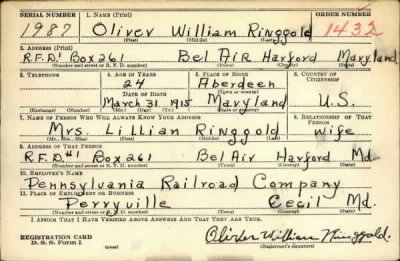 SERIAL NUMBER 1. NAME (Print) ORDER NUMBER
1987 Oliver William Ringgold 1432
(First) (Middle) (Last)
2. ADDRESS (Print)
R.F.D. Box 261 Bel Air Harford Maryland
(Number and street or R. F. D. number) (Town) (County) (State)
3. TELEPHONE 4. AGE IN YEARS 5. PLACE OF BIRTH 6. COUNTRY OF CITIZENSHIP
24 Aberdeen
DATE OF BIRTH (Town or county)
March 31 1915 Maryland U.S.
(Exchange) (Number) (Mo.) (Day) (Yr.) (State or country)
7. NAME OF PERSON WHO WILL ALWAYS KNOW YOUR ADDRESS 8. RELATIONSHIP OF THAT PERSON
Mrs. Lillian Ringgold wife
(Mr., Mrs., Miss) (First) (Middle) (Last)
9. ADDRESS OF THAT PERSON
R.F.D.#1 Box 261 Bel Air Harford Md.
(Number and street or R. F. D. number) (Town) (County) (State)
10. EMPLOYER'S NAME
Pennsylvania Railroad Company
11. PLACE OF EMPLOYMENT OR BUSINESS
Perryville Cecil Md.
(Number and street or R. F. D. number) (Town) (County) (State)
I AFFIRM THAT I HAVE VERIFIED ABOVE ANSWERS AND THAT THEY ARE TRUE.
REGISTRATION CARD
D. S. S. Form 1
Oliver William Ringgold.
(Registrant's signature)